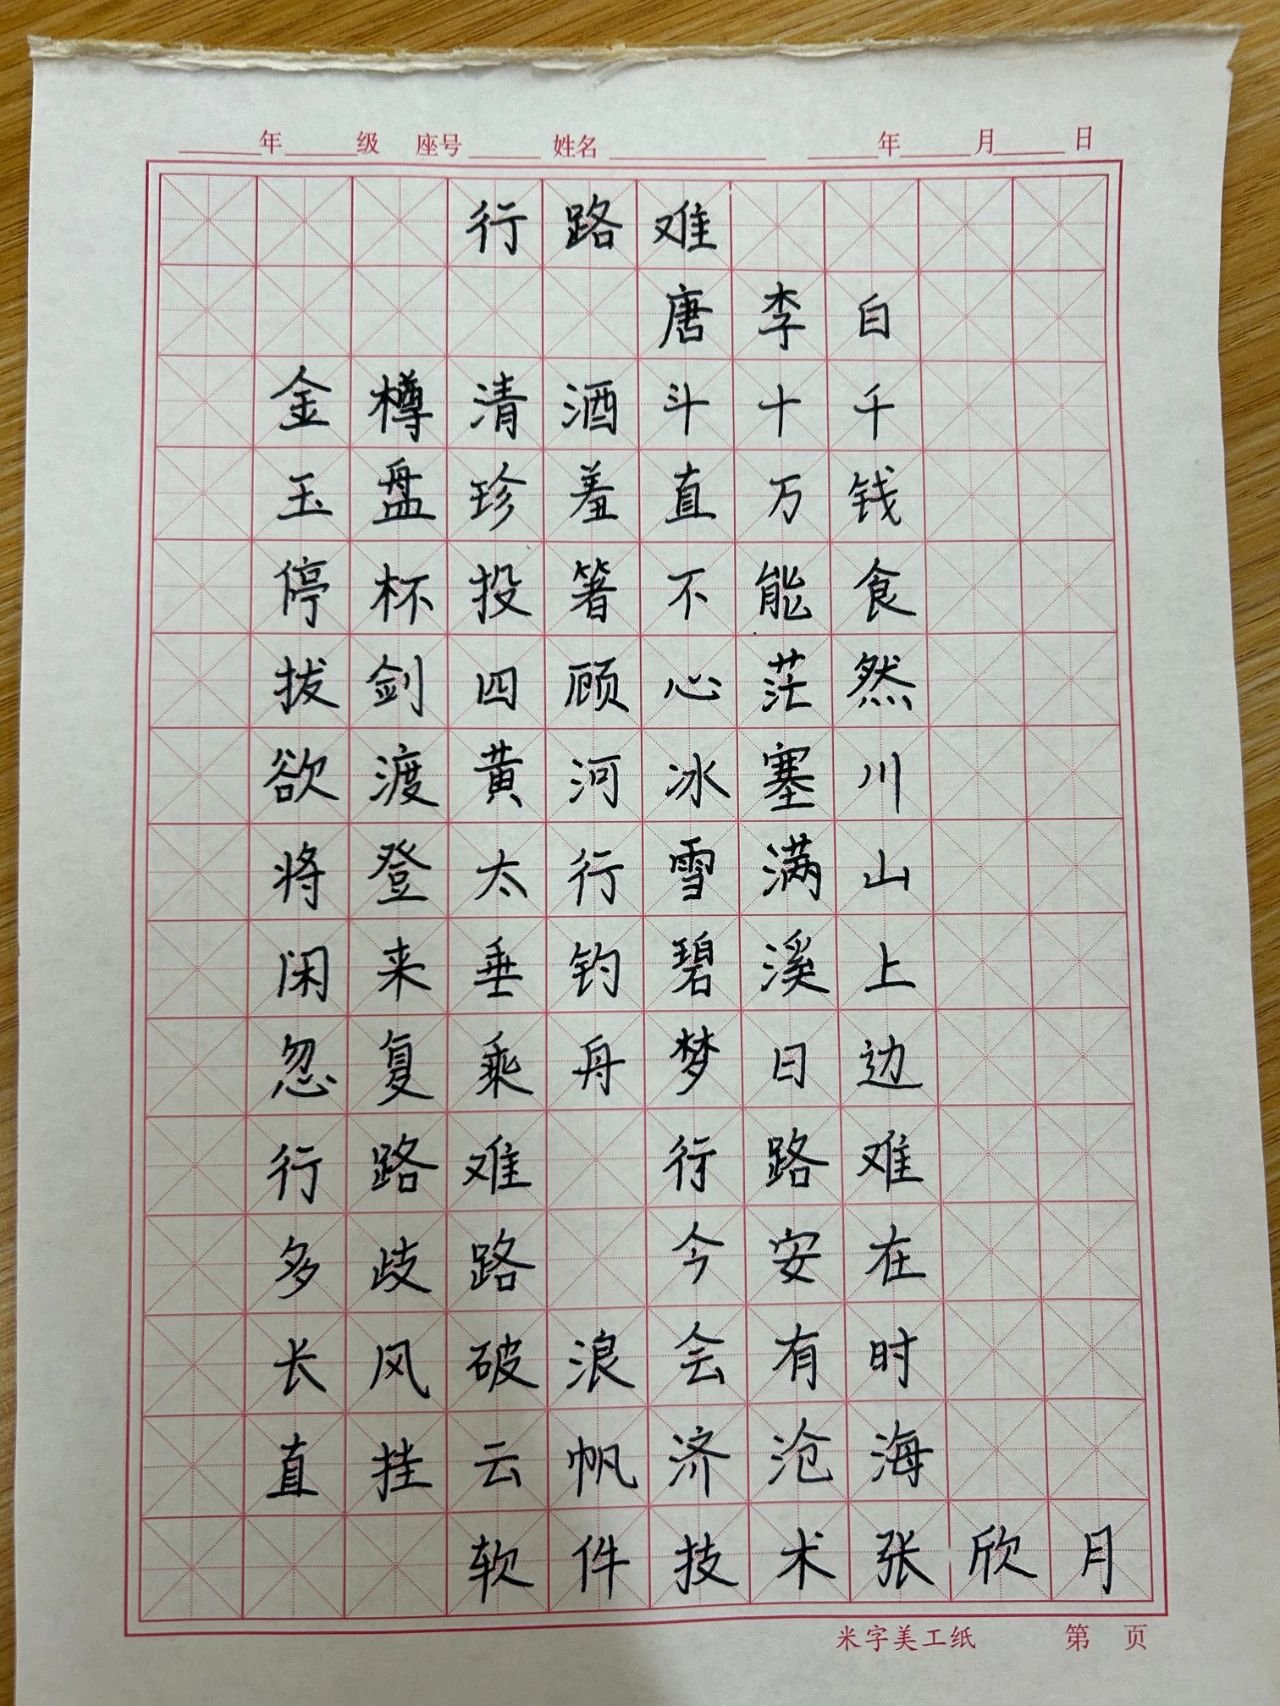 年 级 座号 姓名 年 月 日
行路难
唐李白
金樽清酒斗十千
玉盘珍羞直万钱
停杯投箸不能食
拔剑四顾心茫然
欲渡黄河冰塞川
将登太行雪满山
闲来垂钓碧溪上
忽复乘舟梦日边
行路难 行路难
多歧路 今安在
长风破浪会有时
直挂云帆济沧海
软件技术张欣月
米字美工纸 第 页